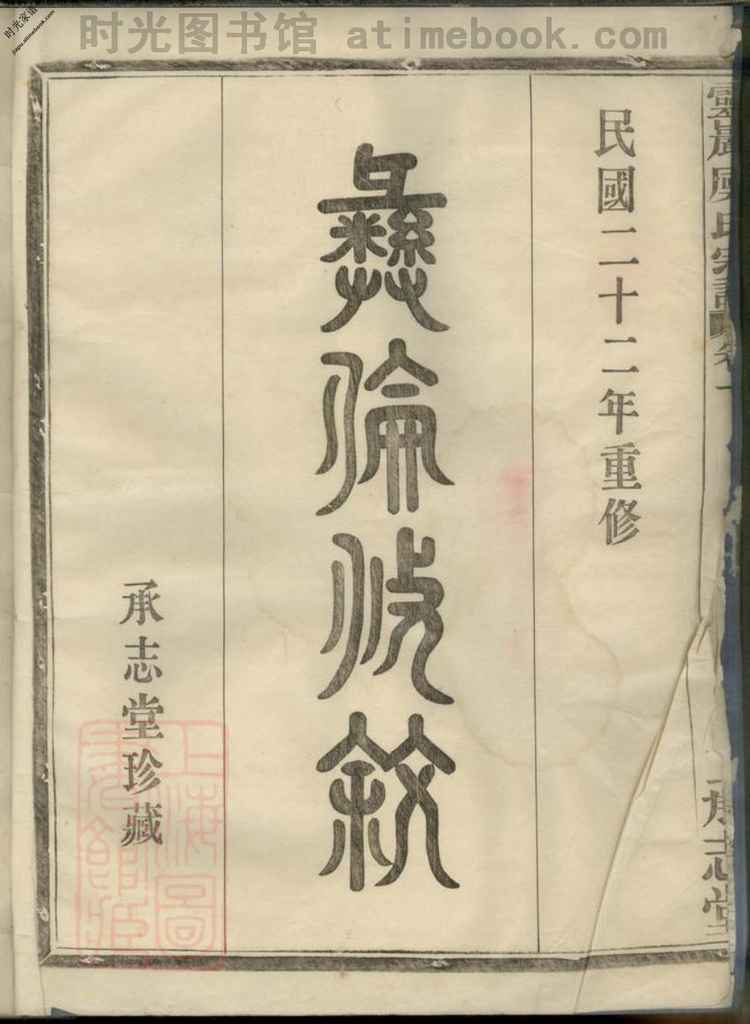 时光图书馆 atimebook.com
民國二十二年重修
彝倫攸敘
承志堂珍藏
承志堂